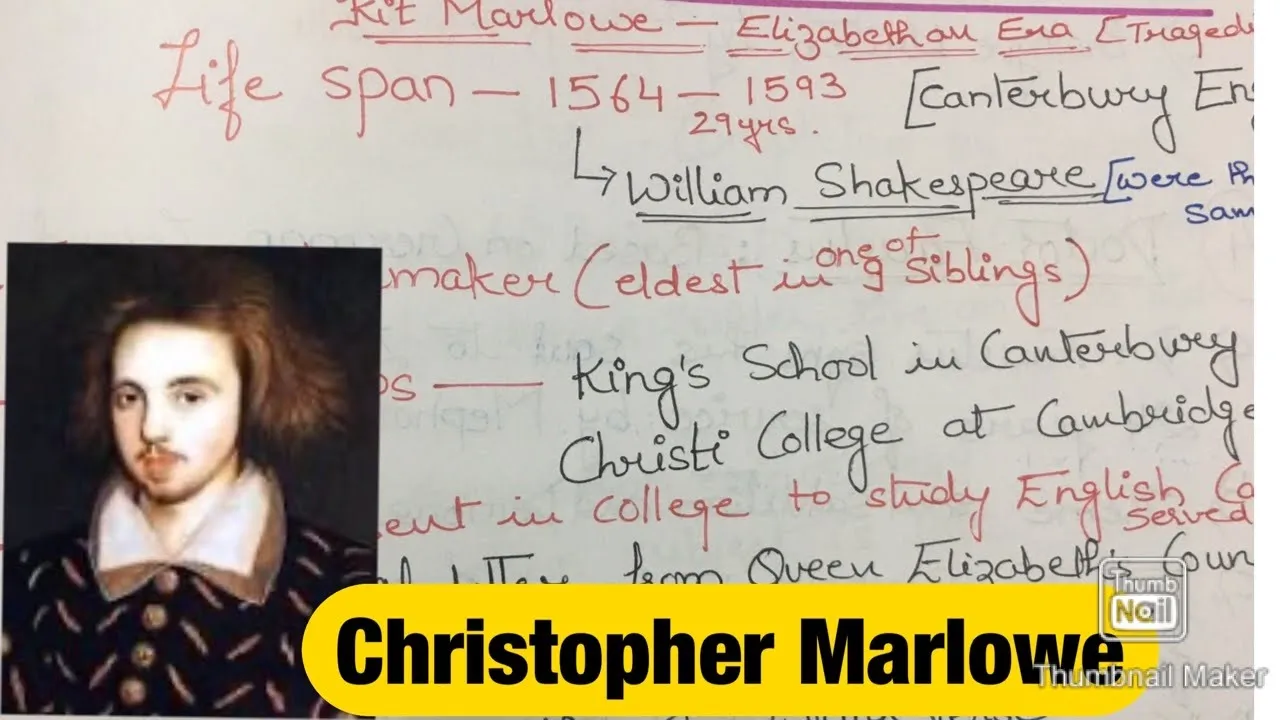 Kit Marlowe — Elizabethan Era [Tragedi
Life span — 1564 — 1593 [Canterbury En
29yrs.
William Shakespeare [were th
sam
maker (eldest in one of 9 siblings)
King's School in Canterbury
Christi College at Cambridge
ent in college to study English Co
served
from Queen Elizabeth's Coun
Thumb
Nail
Christopher Marlowe
Thumbnail Maker